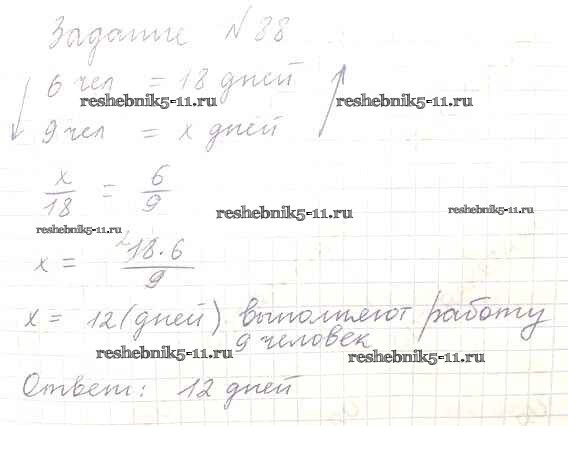 Задание № 88
6 чел = 18 дней
reshebnik5-11.ru reshebnik5-11.ru
9 чел = x дней
x/18 = 6/9
reshebnik5-11.ru reshebnik5-11.ru
reshebnik5-11.ru
x = 18·6/9
x = 12 (дней) выполняют работу
9 человек
reshebnik5-11.ru reshebnik5-11.ru
Ответ: 12 дней